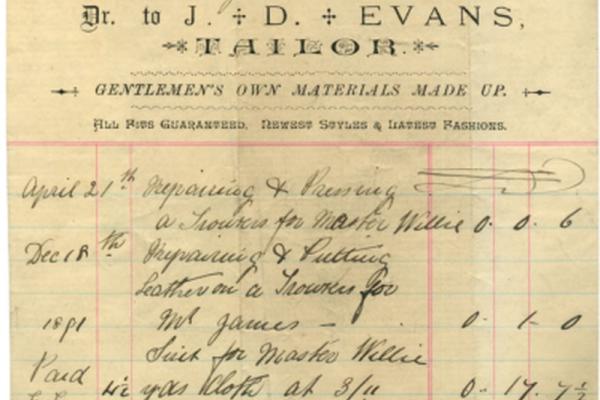 Dr. to J. D. EVANS,
TAILOR.
GENTLEMEN'S OWN MATERIALS MADE UP.
ALL FITS GUARANTEED. NEWEST STYLES & LATEST FASHIONS.
April 21th Repairing & Pressing
a Trousers for Master Willie 0. 0. 6
Dec 18th Repairing & Putting
Leather on a Trousers for
1891 Mr James - 0. 1- 0
Suit for Master Willie
Paid 4½ yds Cloth at 3/11 0. 17. 7½